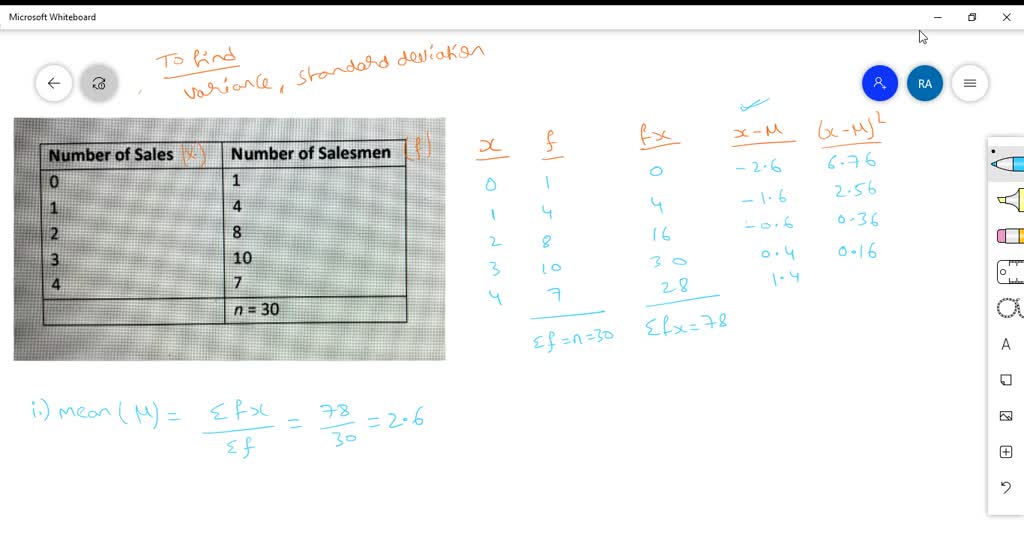 Microsoft Whiteboard
To find
variance, standard deviation
RA
Number of Sales (x) Number of Salesmen (f)
0 1
1 4
2 8
3 10
4 7
n = 30
x f fx x-M (x-M)²
0 1 0 -2.6 6.76
1 4 4 -1.6 2.56
2 8 16 -0.6 0.36
3 10 30 0.4 0.16
4 7 28 1.4
Σf=n=30 Σfx=78
i.) mean (M) = Σfx / Σf = 78 / 30 = 2.6
A